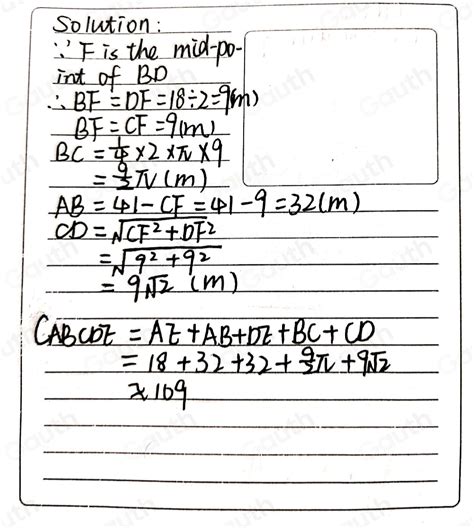 Solution:
∵ F is the mid-po-
int of BD
∴ BF = DF = 18 ÷ 2 = 9(m)
BF = CF = 9(m)
BC = 1/4 × 2 × π × 9
= 9/2 π (m)
AB = 41 - CF = 41 - 9 = 32(m)
CD = √(CF² + DF²)
= √(9² + 9²)
= 9√2 (m)
CABCDE = AE + AB + DE + BC + CD
= 18 + 32 + 32 + 9/2 π + 9√2
≈ 109